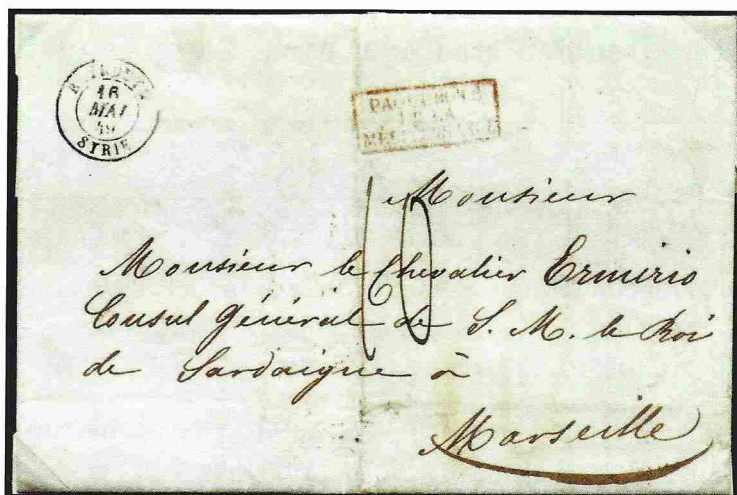 BEYROUTH
16
MAI
49
SYRIE
PAQUEBOTS
DE LA
MÉDITERRANÉE
10
Monsieur
Monsieur le Chevalier Ermirio
Consul Général de S. M. le Roi
de Sardaigne à
Marseille